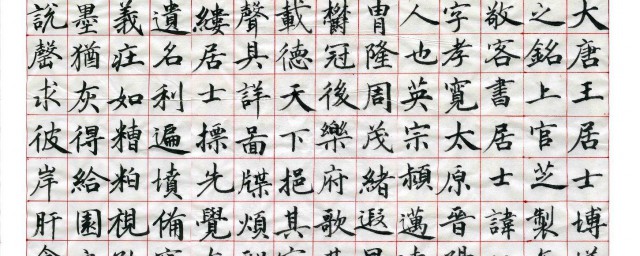 大唐王居士塼
之銘上官芝製
敬客書居士諱
字孝寬太原晉
人也英宗頴邁
胄隆周茂緒遐
欝冠後樂府歌
載德天下挹其
聲具詳啚牒煩
縷居士摽先覺
遺名利遍墳備
義疰如糟粕視
墨猶灰得給園
說罄求彼岸肝